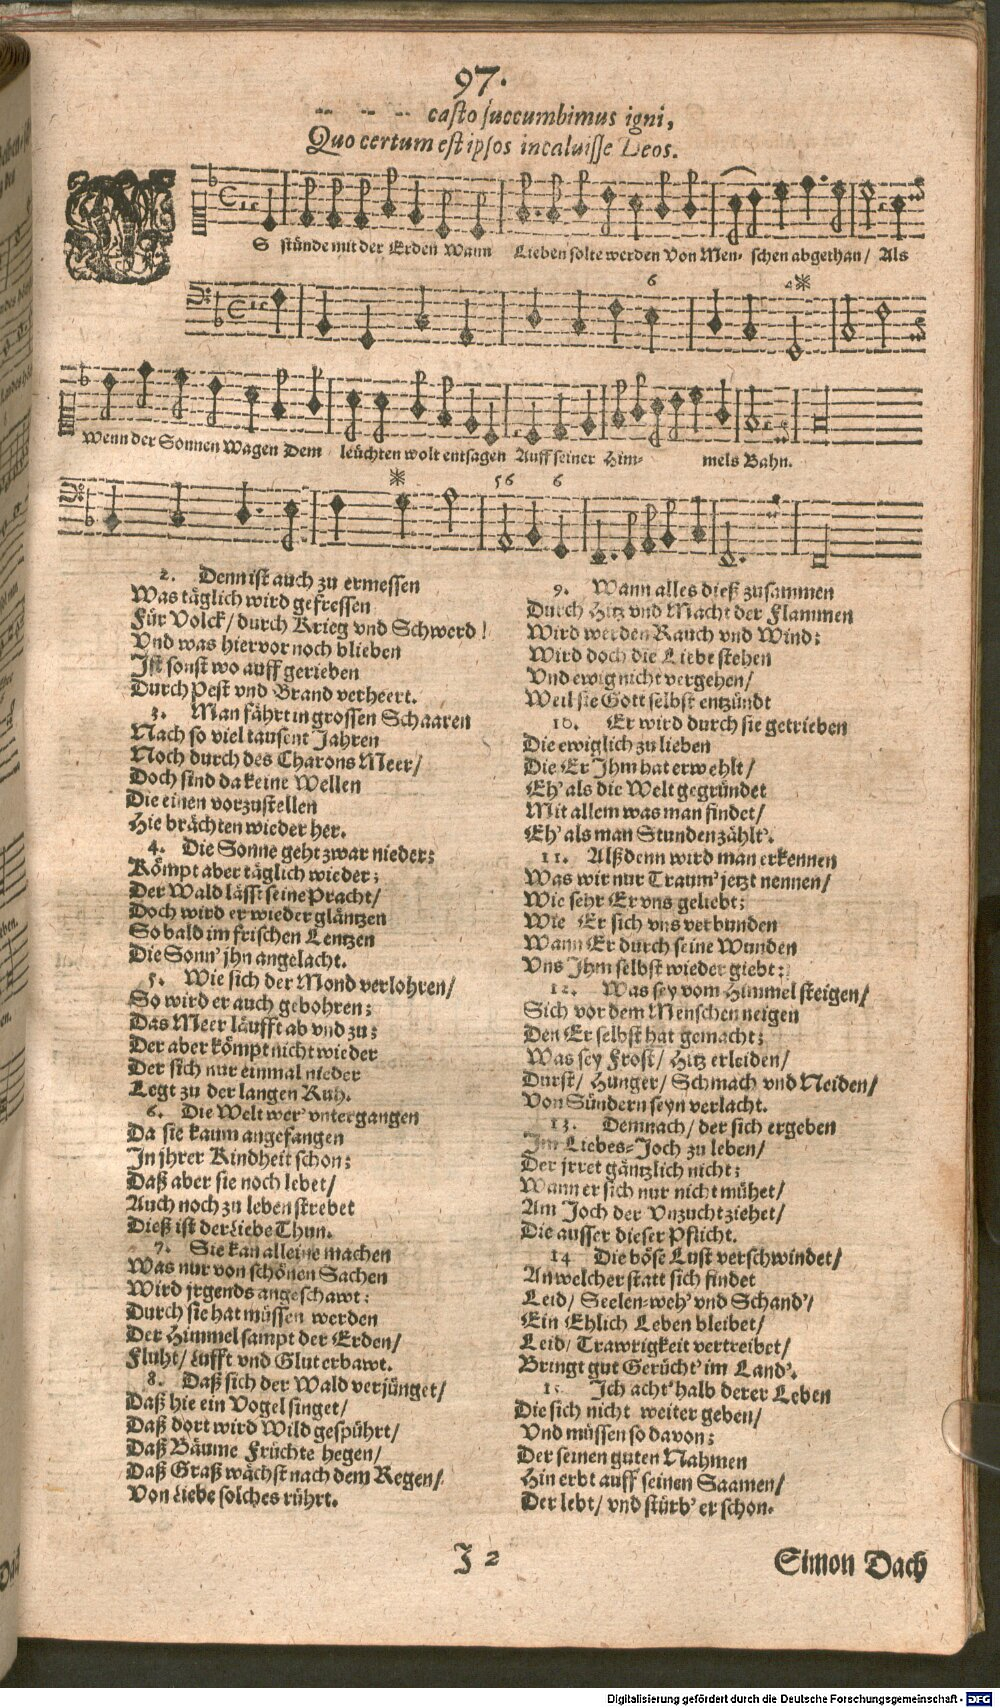 97.
-- -- -- casto succumbimus igni,
Quo certum est ipsos incaluisse Deos.
ES stünde mit der Erden Wann Lieben solte werden Von Men- schen abgethan/ Als
6 4
Wenn der Sonnen Wagen Dem leüchten wolt entsagen Auff seiner Him- mels Bahn.
56 6
2. Denn ist auch zu ermessen
Was täglich wird gefressen
Für Volck/ durch Krieg vnd Schwerd!
Vnd was hiervor noch blieben
Ist sonst wo auff gerieben
Durch Pest vnd Brand verheert.
3. Man fährt in grossen Schaaren
Nach so viel tausent Jahren
Noch durch des Charons Meer/
Doch sind da keine Wellen
Die einen vorzustellen
Hie brächten wieder her.
4. Die Sonne geht zwar nieder;
Kömpt aber täglich wieder;
Der Wald lässt seine Pracht/
Doch wird er wieder gläntzen
So bald im frischen Lentzen
Die Sonn' jhn angelacht.
5. Wie sich der Mond verlohren/
So wird er auch gebohren;
Das Meer läufft ab vnd zu;
Der aber kömpt nicht wieder
Der sich nur einmal nieder
Legt zu der langen Ruh.
6. Die Welt wer' vntergangen
Da sie kaum angefangen
In jhrer Kindheit schon;
Daß aber sie noch lebet/
Auch noch zu leben strebet
Dieß ist der Liebe Thun.
7. Sie kan alleine machen
Was nur von schönen Sachen
Wird jrgends angeschawt:
Durch sie hat müssen werden
Der Himmel sampt der Erden/
Fluht/ Lufft vnd Glut erbawt.
8. Daß sich der Wald verjünget/
Daß hie ein Vogel singet/
Daß dort wird Wild gespührt/
Daß Bäume Früchte hegen/
Daß Graß wächst nach dem Regen/
Von Liebe solches rührt.
9. Wann alles dieß zusammen
Durch Hitz vnd Macht der Flammen
Wird werden Rauch vnd Wind:
Wird doch die Liebe stehen
Vnd ewig nicht vergehen/
Weil sie Gott selbst entzündt
10. Er wird durch sie getrieben
Die ewiglich zu lieben
Die Er Ihm hat erwehlt/
Eh' als die Welt gegründet
Mit allem was man findet/
Eh' als man Stunden zählt'.
11. Alßdenn wird man erkennen
Was wir nur Traum' jetzt nennen/
Wie sehr Er vns geliebt;
Wie Er sich vns verbunden
Wann Er durch seine Wunden
Vns Ihm selbst wieder giebt:
12. Was sey vom Himmel steigen/
Sich vor dem Menschen neigen
Den Er selbst hat gemacht;
Was sey Frost/ Hitz erleiden/
Durst/ Hunger/ Schmach vnd Neiden/
Von Sündern seyn verlacht.
13. Demnach/ der sich ergeben
Im Liebes-Joch zu leben/
Der jrret gäntzlich nicht;
Wann er sich nur nicht mühet/
Am Joch der Vnzucht ziehet/
Die ausser dieser Pflicht.
14 Die böse Lust verschwindet/
An welcher statt sich findet
Leid/ Seelen-weh' vnd Schand'/
Ein Ehlich Leben bleibet/
Leid/ Trawrigkeit vertreibet/
Bringt gut Gerücht' im Land'.
15 Ich acht' halb derer Leben
Die sich nicht weiter geben/
Vnd müssen so davon;
Der seinen guten Nahmen
Hin erbt auff seinen Saamen/
Der lebt/ vnd stürb' er schon.
J 2
Simon Dach
Digitalisierung gefördert durch die Deutsche Forschungsgemeinschaft - DFG